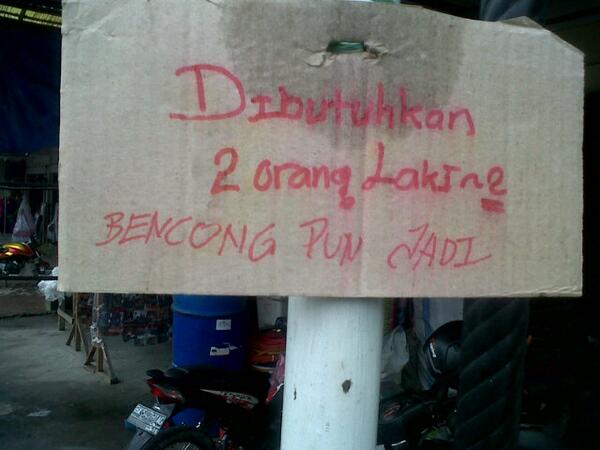 Dibutuhkan
2 orang Laki~2
BENCONG PUN JADI